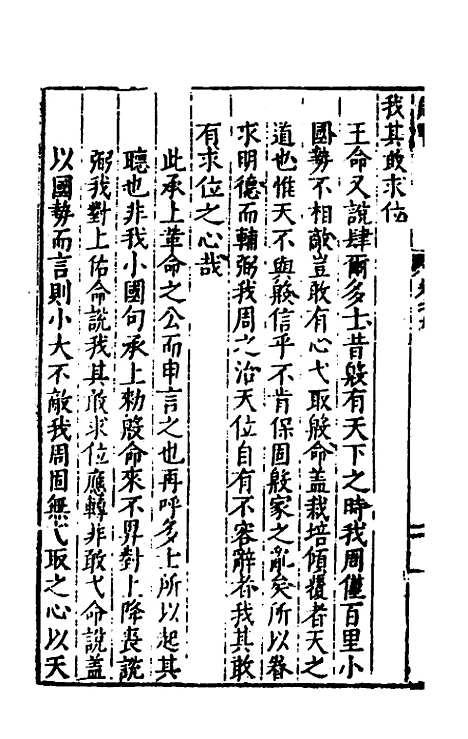 我其敢求位
王命又說肆爾多士昔殷有天下之時我周僅百里小
國勢不相敵豈敢有心弋取殷命盖栽培傾覆者天之
道也惟天不與殷信乎不肯保固殷家之亂矣所以眷
求明德而輔弼我周之治天位自有不容辭者我其敢
有求位之心哉
此承上革命之公而申言之也再呼多士所以起其
聽也非我小國句承上勑殷命來不畀對上降喪說
弼我對上佑命說我其敢求位應轉非敢弋命說盖
以國勢而言則小大不敵我周固無弋取之心以天